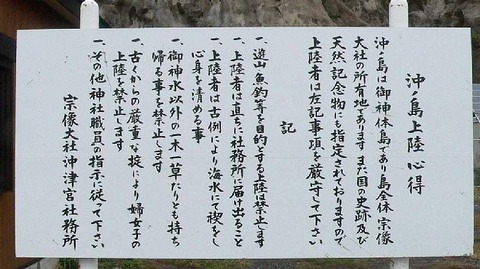 沖ノ島上陸心得
沖ノ島は御神体島であり島全体宗像
大社の所有地であります また国の史跡及び
天然記念物にも指定されておりますので
上陸者は左記事項を厳守して下さい
記
一、遊山 魚釣等を目的とする上陸は禁止します
一、上陸者は直ちに社務所へ届け出ること
一、上陸者は古例により海水にて禊をし
心身を清める事
一、御神水以外の一木一草たりとも持ち
帰る事を禁止します
一、古くからの厳重な掟により婦女子の
上陸を禁止します
一、その他神社職員の指示に従って下さい
宗像大社沖津宮社務所